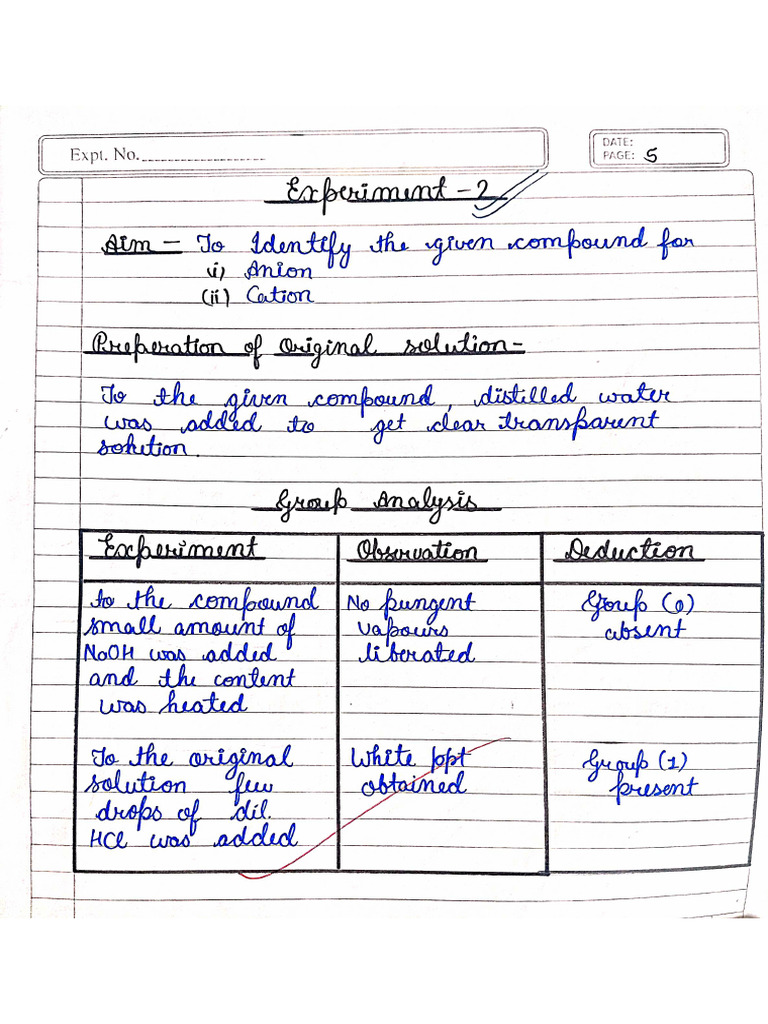 Expt. No.
DATE:
PAGE: 5
Experiment - 2
Aim — To Identify the given compound for
(i) Anion
(ii) Cation
Preperation of Original solution-
To the given compound, distilled water
was added to get clear transparent
solution.
Group Analysis
Experiment Observation Deduction
to the compound No pungent Group (0)
small amount of vapours absent
NaOH was added liberated
and the content
was heated
To the original White ppt Group (1)
solution few obtained present
drops of dil.
HCl was added